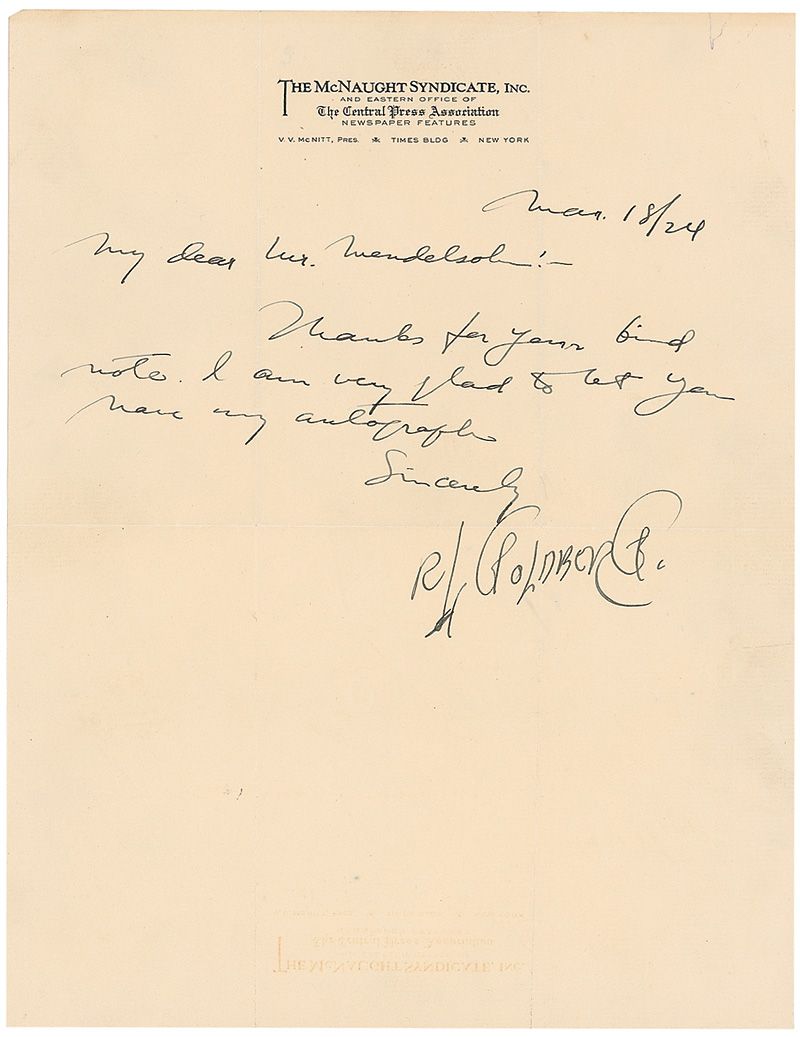 THE MCNAUGHT SYNDICATE, INC.
AND EASTERN OFFICE OF
The Central Press Association
NEWSPAPER FEATURES
V. V. MCNITT, PRES. TIMES BLDG NEW YORK
Mar. 18/24
My dear Mr. Mendelsohn:—
Thanks for your kind
note. I am very glad to let you
have my autograph
Sincerely
R L GOLDBERG.